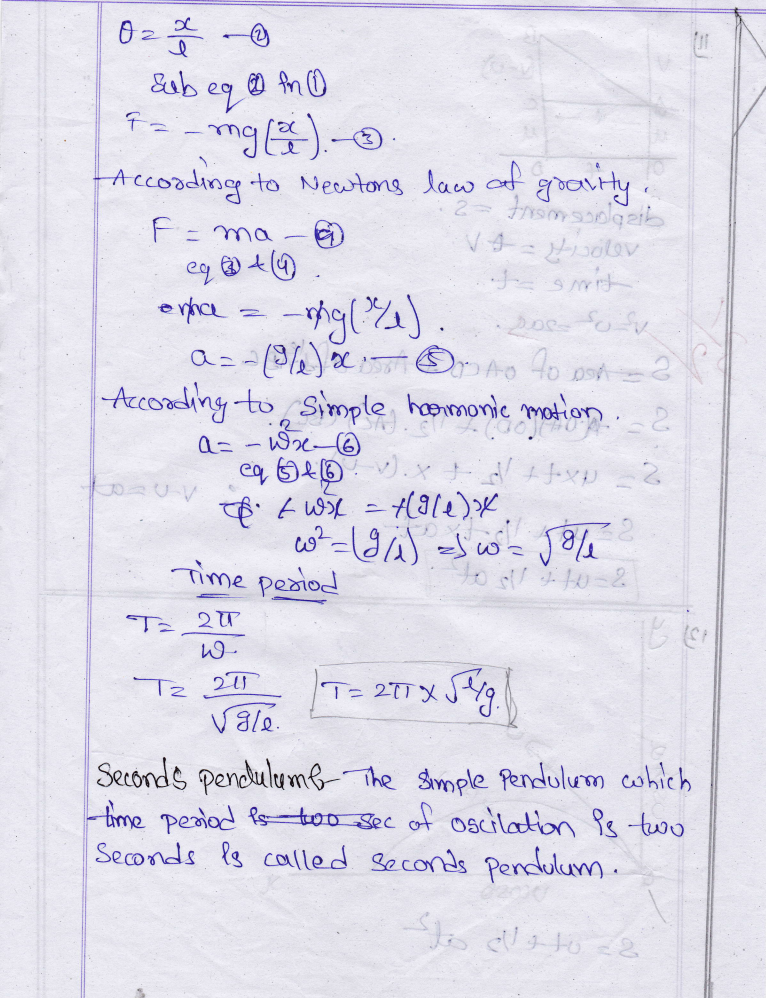 θ = x/l —②
Sub eq ② in ①
F = -mg(x/l). —③.
According to Newtons law of gravity.
F = ma —④
eq ③ & ④.
ma = -mg(x/l).
a = -(g/l)x. —⑤.
According to Simple harmonic motion.
a = -ω²x —⑥
eq ⑤ & ⑥.
+ω²x = +(g/l)x
ω² = (g/l) => ω = √g/l
Time period
T = 2π/ω
T = 2π/√g/l. T = 2π × √l/g.
Seconds pendulum:- The simple Pendulum which
time period is two sec of oscilation is two
Seconds is called seconds pendulum.